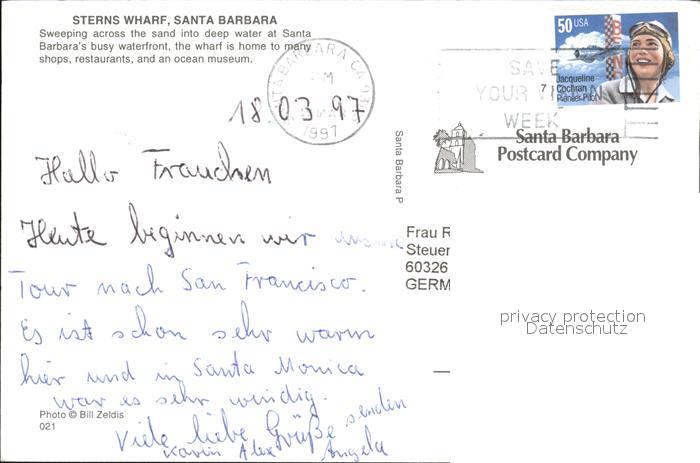 STERNS WHARF, SANTA BARBARA
Sweeping across the sand into deep water at Santa
Barbara's busy waterfront, the wharf is home to many
shops, restaurants, and an ocean museum.
50 USA
Jacqueline
Cochran
Pioneer Pilot
SANTA BARBARA CA
1997
SAVE
YOUR VISION
WEEK
18.03.97
Santa Barbara
Postcard Company
Hallo Frauchen
Heute beginnen wir unsere
Tour nach San Francisco.
Es ist schon sehr warm
hier und in Santa Monica
war es sehr windig.
Viele liebe Grüße senden
Karin Alex Angela
Photo © Bill Zeldis
021
Santa Barbara P
Frau R
Steuer
60326
GERM
privacy protection
Datenschutz